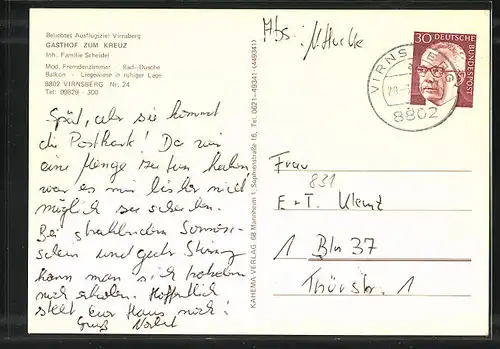 Beliebtes Ausflugsziel Virnsberg
GASTHOF ZUM KREUZ
Inh. Familie Scheidel
Mod. Fremdenzimmer Bad-Dusche
Balkon - Liegewiese in ruhiger Lage
8802 VIRNSBERG Nr. 24
Tel. 09829 - 300
Spät, aber sie kommt
die Postkarte! Da wir
eine Menge zu tun haben,
war es mir bisher nicht
möglich zu schreiben.
Bei strahlendem Sonnen-
schein und guter Stimmung
kann man sich trotzdem
noch erholen. Hoffentlich
steht euer Haus noch!
Gruß Norbert
KAHEMA-VERLAG 68 Mannheim 1, Sophienstraße 16, Tel. 0621-49341 (449341)
Abs.:
30 DEUTSCHE
BUNDESPOST
VIRNSBERG
8802
Frau
831
E + T. Klenz
1 Bln 37
Thürstr. 1